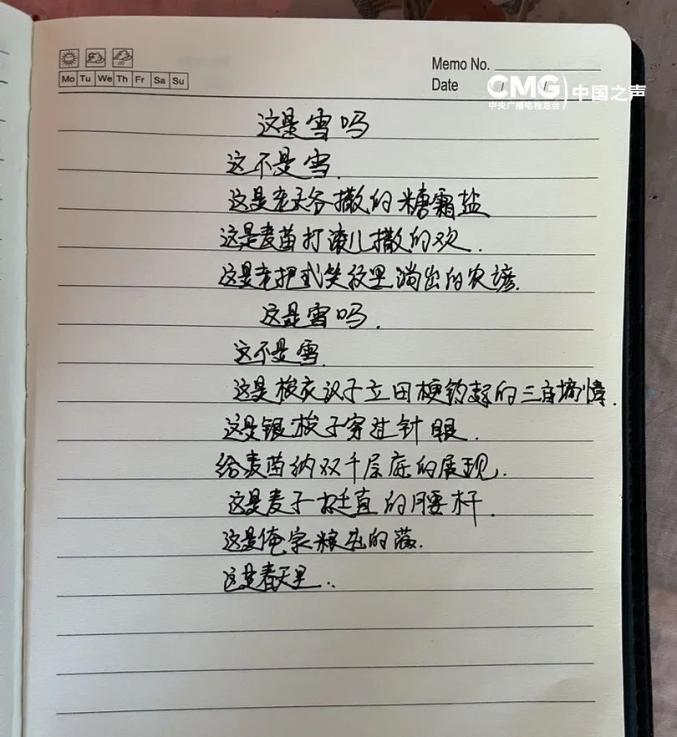 Memo No.
Mo Tu We Th Fr Sa Su
Date / /
CMG 中国之声
中央广播电视总台
这是雪吗
这不是雪.
这是老天爷撒的糖霜盐
这是麦苗打滚儿撒的欢.
这是老把式笑纹里淌出的农谚.
这是雪吗.
这不是雪.
这是 汉子立田梗 的三 墒情.
这是银梭子穿过针眼.
给麦苗纳双千层底的展现.
这是麦子挺直的腰杆.
这是俺家粮 的
这是春天里..